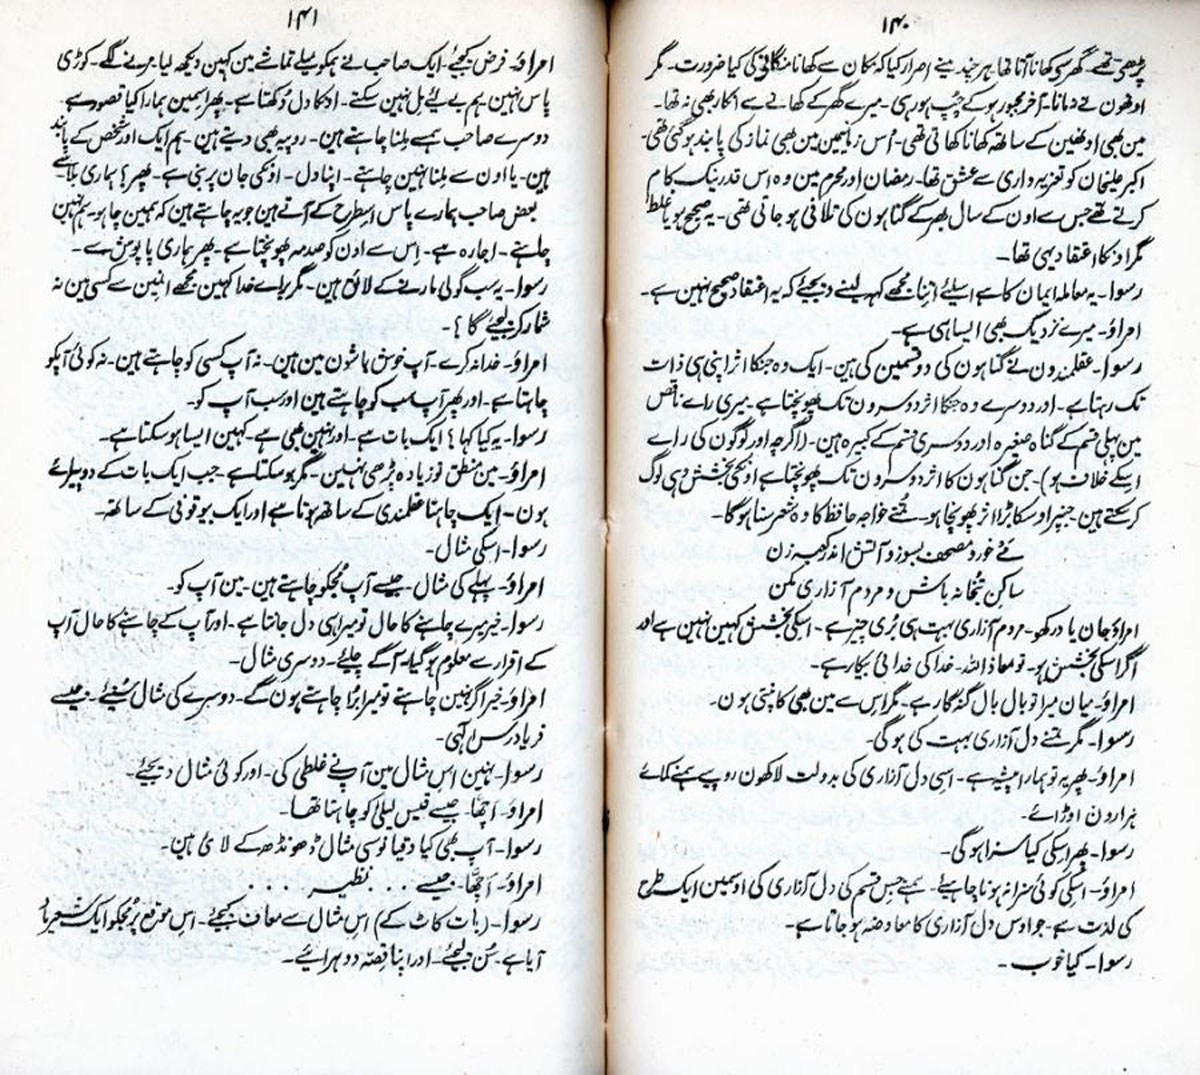 ۱۴۰
پڑھتی تھے۔ گھر سے کھانا آتا تھا۔ ہر چند مینے اصرار کیا کہ دکان سے کھانا منگانیکی کیا ضرورت۔ مگر
اونھون نے نہ مانا۔ آخر مجبور ہو کے چپ ہو رہی۔ میرے گھر کے کھانے سے انکار بھی نہ تھا۔
مین بھی اونھین کے ساتھ کھانا کھاتی تھی۔ اُس زمانہمین مین بھی نماز کی پابند ہو گئی تھی۔
اکبر علیخان کو تعزیہ داری سے عشق تھا۔ رمضان اور محرم مین وہ اس قدر نیک کام
کرتے تھے جس سے اون کے سال بھر کے گناہون کی تلافی ہو جاتی تھی۔ یہ صحیح ہو یا غلط
مگر اونکا اعتقاد یہی تھا۔
رسوا۔ یہ معاملہ ایمان کا ہے اسلیے اتنا مجھے کہہ لینے دیجیے کہ یہ اعتقاد صحیح نہین ہے۔
امراؤ۔ میرے نزدیک بھی ایسا ہی ہے۔
رسوا۔ عقلمندون نے گناہون کی دو قسمین کی ہین۔ ایک وہ جنکا اثر اپنی ہی ذات
تک رہتا ہے۔ اور دوسرے وہ جنکا اثر دوسرون تک پھونچتا ہے۔ میری راے ناقص
مین پہلی قسم کے گناہ صغیرہ اور دوسری قسم کے کبیرہ ہین۔ (اگرچہ اور لوگون کی راے
اسکے خلاف ہو)۔ جن گناہون کا اثر دوسرون تک پھونچتا ہے اونکی بخشش وہی لوگ
کر سکتے ہین۔ جنپر اوسکا بُرا اثر پھونچا ہو۔ تمنے خواجہ حافظ کا وہ شعر سنا ہوگا۔
مے خور و مصحف بسوز و آتش اندر کعبہ زن
ساکن بتخانہ باش و مردم آزاری مکن
امراؤ جان یاد رکھو۔ مردم آزاری بہت ہی بُری چیز ہے۔ اسکی بخشش کہین نہین ہے اور
اگر اسکی بخشش ہو۔ تو معاذ اللہ۔ خدا کی خدائی بیکار ہے۔
امراؤ۔ میان میرا تو بال بال گنہگار ہے۔ مگر اس سے مین بھی کانپتی ہون۔
رسوا۔ مگر تمنے دل آزاری بہت کی ہوگی۔
امراؤ۔ پھر یہ تو ہمارا پیشہ ہے۔ اسی دل آزاری کی بدولت لاکھون روپیے ہمنے کمائے
ہزارون اوڑائے۔
رسوا۔ پھر اسکی کیا سزا ہوگی۔
امراؤ۔ اسکی کوئی سزا نہ ہونا چاہیے۔ ہمنے جس قسم کی دل آزاری کی اوسمین ایک طرح
کی لذت ہے۔ جو اوس دل آزاری کا معاوضہ ہو جاتا ہے۔
رسوا۔ کیا خوب۔
۱۴۱
امراؤ۔ فرض کیجیے۔ ایک صاحب نے ہمکو میلے تماشے مین کہین دیکھ لیا۔ مرنے لگے۔ کوڑی
پاس نہین۔ ہم بے لیے مِل نہین سکتے۔ اونکا دل دُکھتا ہے۔ پھر اسمین ہمارا کیا قصور ہے۔
دوسرے صاحب ہمسے ملنا چاہتے ہین۔ روپیہ بھی دیتے ہین۔ ہم ایک اور شخص کے پابند
ہین۔ یا اون سے ملنا نہین چاہتے۔ اپنا دل۔ اونکی جان پر بنی ہے۔ پھر؟ ہماری بلا سے
بعض صاحب ہمارے پاس اسطرح کے آتے ہین جو یہ چاہتے ہین کہ ہمین چاہو۔ ہم نہین
چاہتے۔ اجارہ ہے۔ اِس سے اون کو صدمہ پھونچتا ہے۔ پھر ہماری پاپوش سے۔
رسوا۔ یہ سب گولی مارنے کے لائق ہین۔ مگر براے خدا کہین مجھے انمین سے کسی مین نہ
شمار کر لیجیے گا؟۔
امراؤ۔ خدا نہ کرے۔ آپ خوش باشون مین ہین۔ نہ آپ کسی کو چاہتے ہین۔ نہ کوئی آپکو
چاہتا ہے۔ اور پھر آپ سب کو چاہتے ہین اور سب آپ کو۔
رسوا۔ یہ کیا کہا؟ ایک بات ہے۔ اور نہین بھی ہے۔ کہین ایسا ہو سکتا ہے۔
امراؤ۔ مین منطق تو زیادہ پڑھی نہین۔ مگر ہو سکتا ہے۔ جب ایک بات کے دو پیرائے
ہون۔ ایک چاہنا عقلمندی کے ساتھ ہوتا ہے اور ایک بیوقوفی کے ساتھ۔
رسوا۔ اسکی مثال۔
امراؤ۔ پہلے کی مثال۔ جیسے آپ مُجکو چاہتے ہین۔ مین آپ کو۔
رسوا۔ خیر میرے چاہنے کا حال تو میرا ہی دل جانتا ہے۔ اور آپ کے چاہنے کا حال آپ
کے اقرار سے معلوم ہو گیا۔ آگے چلیے۔ دوسری مثال۔
امراؤ۔ خیر اگر نہین چاہتے تو میرا بُرا چاہتے ہون گے۔ دوسرے کی مثال سُنیے۔ جیسے
فریادرس الٰہی۔
رسوا۔ نہین اِس مثال مین آپنے غلطی کی۔ اور کوئی مثال دیجیے۔
امراؤ۔ اچھا۔ جیسے قیس لیلیٰ کو چاہتا تھا۔
رسوا۔ آپ بھی کیا دقیانوسی مثال ڈھونڈھ کے لائی ہین۔
امراؤ۔ اچھا۔ جیسے . . . نظیر . . . .
رسوا۔ (بات کاٹ کے) اِس مثال سے معاف کیجیے۔ اس موقع پر مُجکو ایک شعر یاد
آیا ہے۔ سُن لیجیے۔ اور اپنا قصّہ دوہرائیے۔